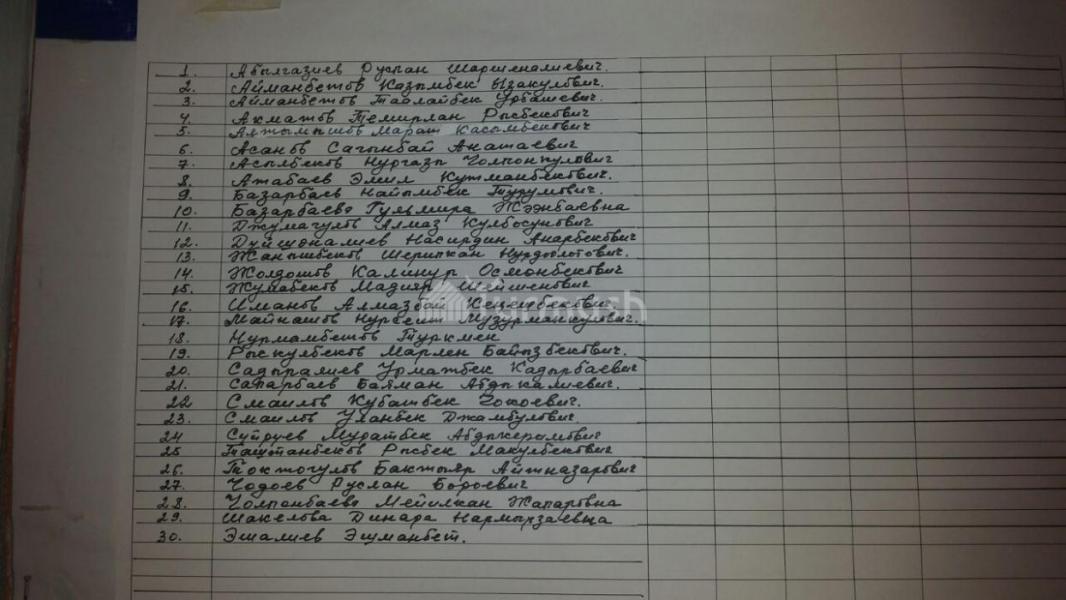 1. Абылгазиев Руслан Шаршеналиевич.
2. Айманбетов Казымбек Ызакулович.
3. Айманбетов Таалайбек Урбашевич.
4. Акматов Темирлан Рысбекович
5. Алтымышов Марат Касымбекович
6. Асанов Сагынбай Анатаевич
7. Асылбеков Нургазы Чолпонкулович
8. Атабаев Эмил Кутманбекович.
9. Базарбаев Найымбек Турумович.
10. Базарбаева Гульмира Жээнбаевна
11. Джумагулов Алмаз Кулбосунович
12. Дуйшоналиев Насирдин Анарбекович
13. Жанышбеков Шерипкан Нурдоолотович.
14. Жолдошов Калинур Осмонбекович
15. Жумабеков Мадияр Шейшенович
16. Иманов Алмазбай Кезембекович
17. Майнашов Нурбеит Музурманкулович.
18. Нурмамбетов Туркмен
19. Рыскулбеков Марлен Байызбекович.
20. Садыралиев Урматбек Кадырбаевич
21. Сапарбаев Баяман Абдыкалиевич.
22 Смаилов Кубатбек Чокоевич.
23. Смаилов Уланбек Джамбулович.
24 Суйруев Муратбек Абдыкеримович
25 Таштанбеков Рысбек Макулбекович
26. Токтогулов Бактыяр Айтназарович
27. Чодоев Руслан Бороевич
28. Чолпонбаева Мейилкан Жапаровна
29. Шакелова Динара Нармырзаевна
30. Эшалиев Эшманбет.
Turmush